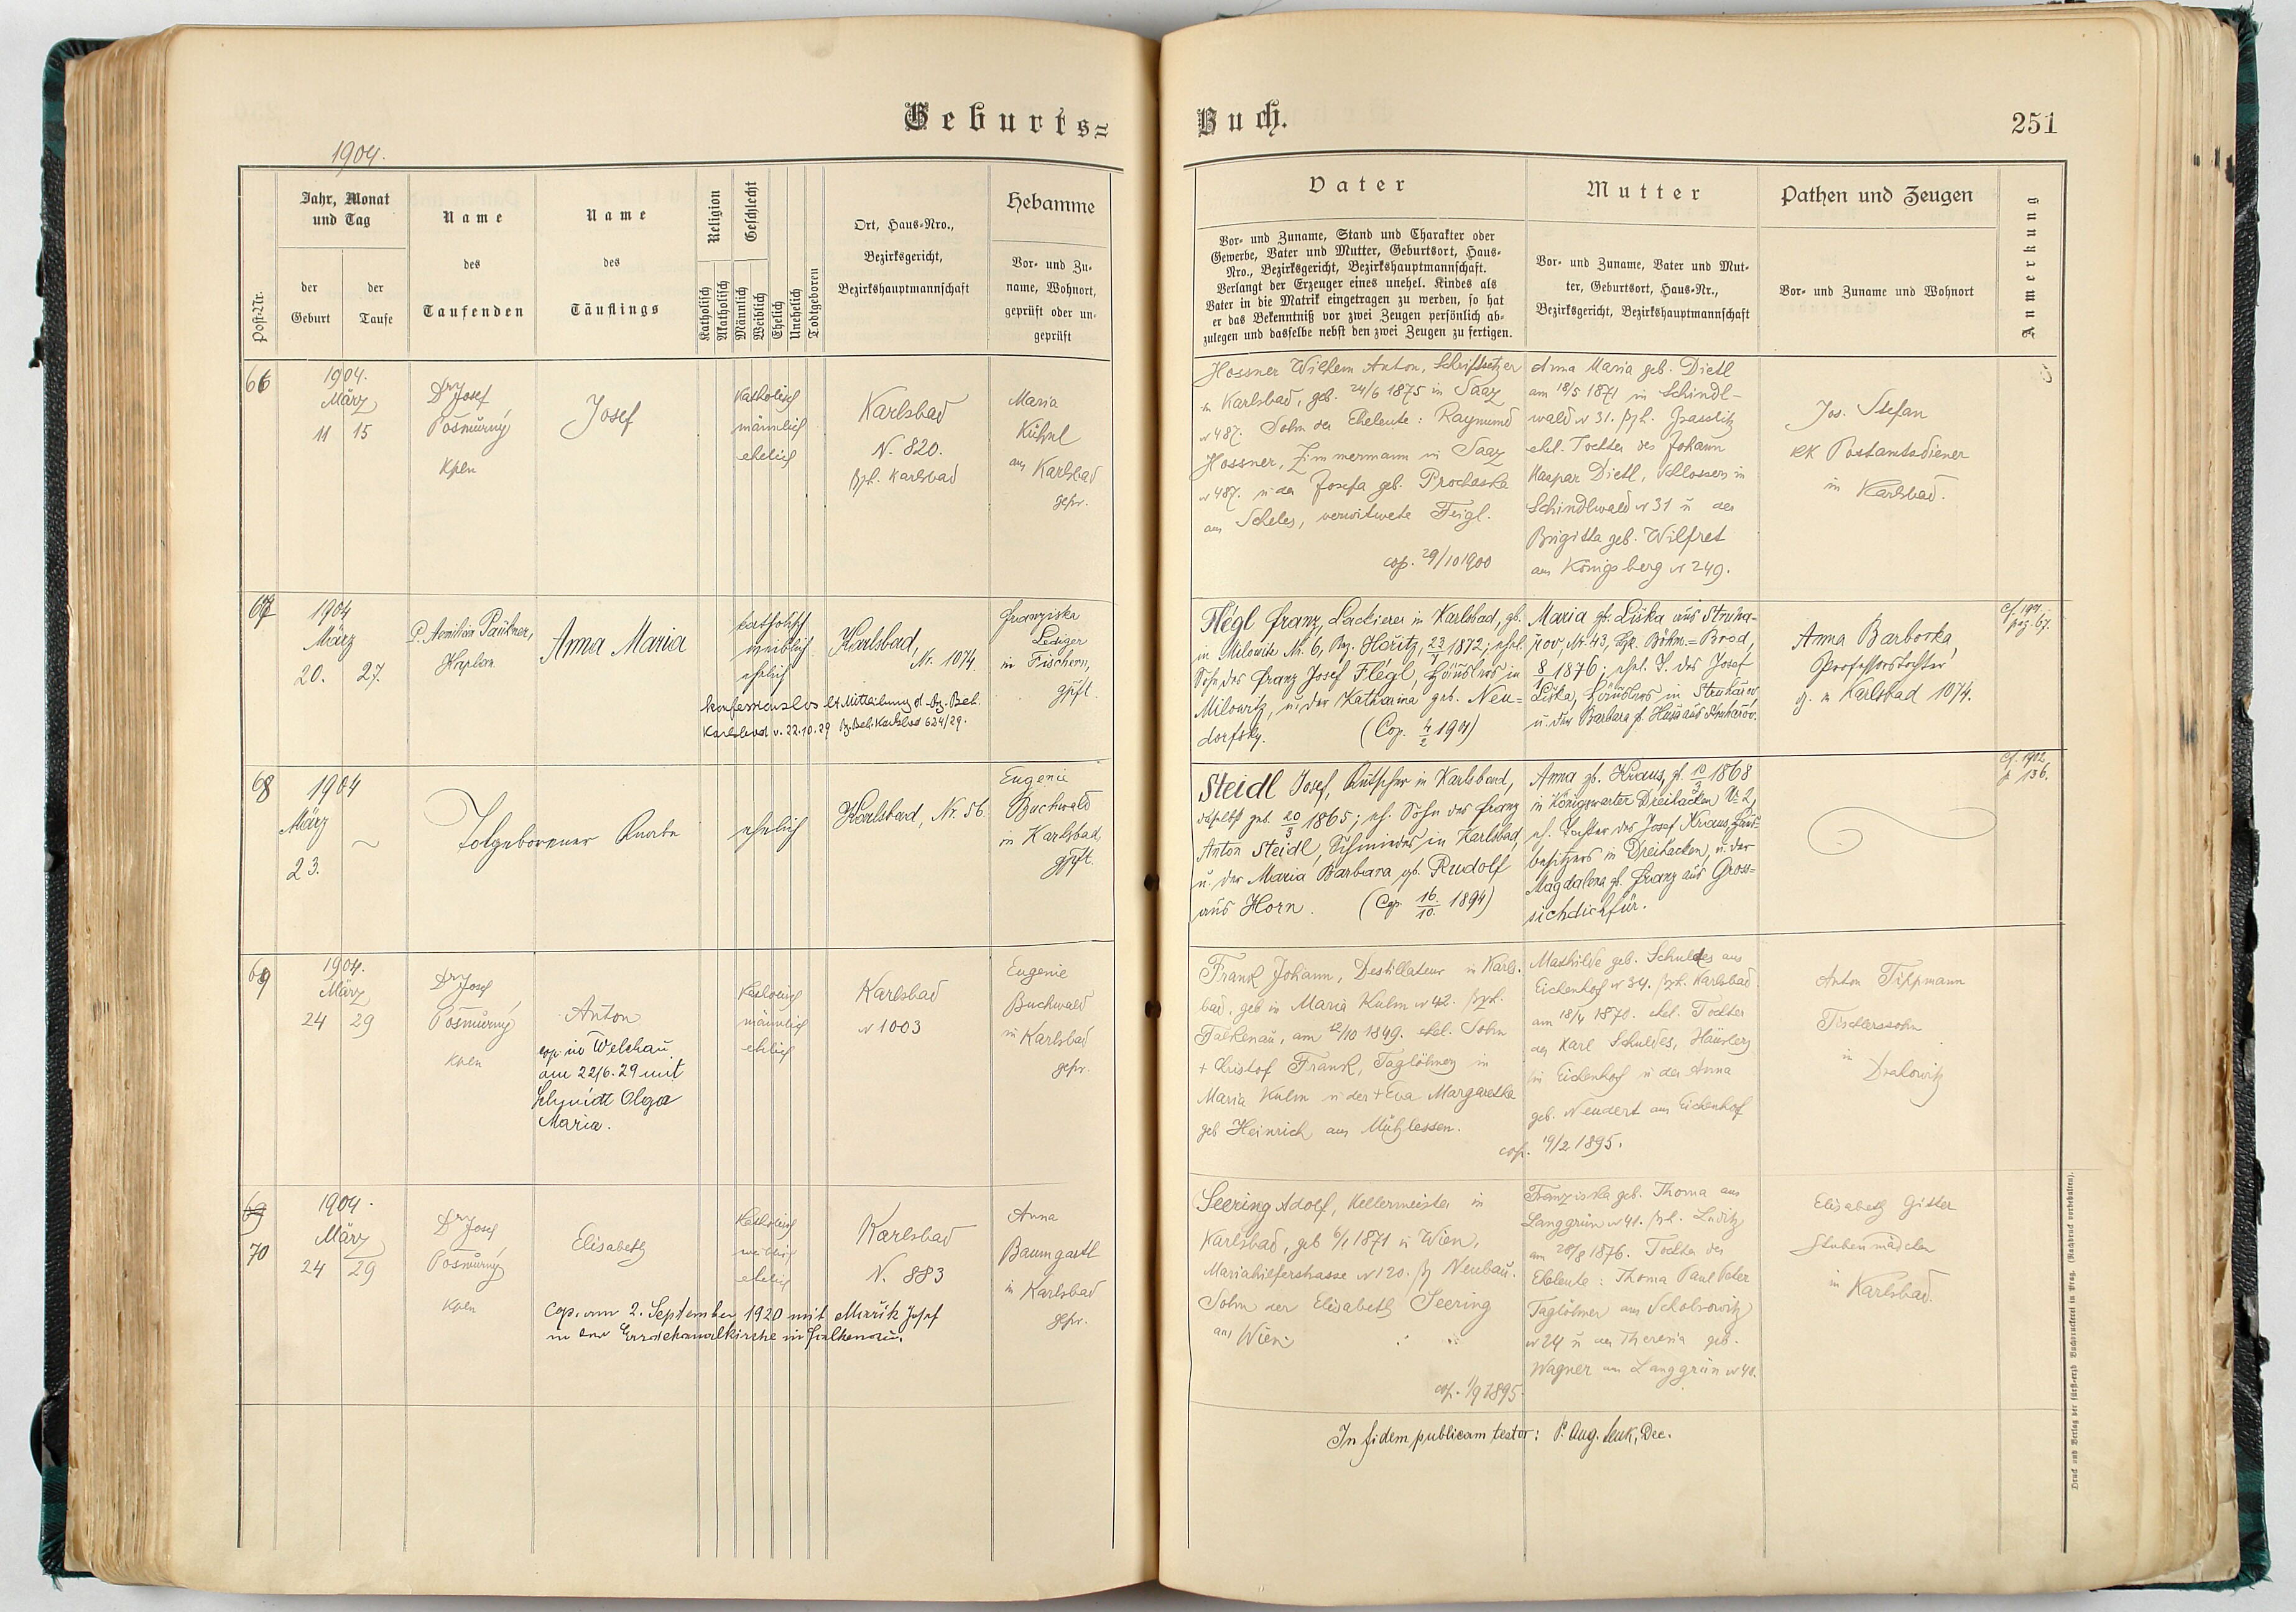 Geburts=
1904.
Post-Nr.
Jahr, Monat
und Tag
der
Geburt
der
Taufe
Name
des
Taufenden
Name
des
Täuflings
Religion
Katholisch
Akatholisch
Geschlecht
Männlich
Weiblich
Ehelich
Unehelich
Todtgeboren
Ort, Haus-Nro.,
Bezirksgericht,
Bezirkshauptmannschaft
Hebamme
Vor- und Zu-
name, Wohnort,
geprüft oder un-
geprüft
66
1904.
März
11 15
Dr Josef
Pošmůrný
Kpln
Josef
Katholisch
männlich
ehelich
Karlsbad
N. 820.
Bzh. Karlsbad
Maria
Kühnl
aus Karlsbad
gepr.
67
1904
März
20. 27.
P. Aemilian Paukner,
Kaplan
Anna Maria
katholisch
weiblich
ehelich
Karlsbad,
Nr. 1074.
Franziska
Lediger
in Fischern,
gpft.
konfessionslos lt Mitteilung d. bz. Beh.
Karlsbad v. 22.10.29 Bz. Beh. Karlsbad 624/29.
68
1904
März
23.
Totgeborener Knabe
ehelich
Karlsbad, Nr. 56.
Eugenie
Buchwald
in Karlsbad,
gpft.
69
1904.
März
24 29
Dr Josef
Pošmůrný
Kpln
Anton
cop. in Welchau
am 22/6.29 mit
Schmidt Olga
Maria.
Katholisch
männlich
ehelich
Karlsbad
N 1003
Eugenie
Buchwald
in Karlsbad
gepr.
69
70
1904.
März
24 29
Dr Josef
Pošmůrný
Kpln
Elisabeth
Katholisch
weiblich
ehelich
Karlsbad
N. 883
Anna
Baumgartl
in Karlsbad
gepr.
Cop. am 2. September 1920 mit Mařik Josef
in der Erzdekanalkirche in Falkenau.
Buch.
251
Vater
Vor- und Zuname, Stand und Charakter oder
Gewerbe, Vater und Mutter, Geburtsort, Haus-
Nro., Bezirksgericht, Bezirkshauptmannschaft.
Verlangt der Erzeuger eines unehel. Kindes als
Vater in die Matrik eingetragen zu werden, so hat
er das Bekenntniß vor zwei Zeugen persönlich ab-
zulegen und dasselbe nebst den zwei Zeugen zu fertigen.
Mutter
Vor- und Zuname, Vater und Mut-
ter, Geburtsort, Haus-Nr.,
Bezirksgericht, Bezirkshauptmannschaft
Pathen und Zeugen
Vor- und Zuname und Wohnort
Anmerkung
Hossner Wilhelm Anton, Schriftsetzer
in Karlsbad, geb. 24/6 1875 in Saaz
N 487. Sohn der Eheleute: Raymund
Hossner, Zimmermann in Saaz
N 487. u der Josefa geb. Prochaska
aus Scheles, verwitwete Feigl.
cop. 29/10 1900
Anna Maria geb. Dietl
am 18/5 1871 in Schindl-
wald N 31. Bzh. Grasslitz
ehel. Tochter des Johann
Kaspar Dietl, Schlossers in
Schindlwald N 31 u der
Brigitta geb. Wilfret
aus Königsberg N 249.
Jos. Stefan
KK Postamtsdiener
in Karlsbad.
Flégl Franz, Lackierer in Karlsbad, gb.
in Milowitz Nr. 6, Bzg. Hořitz, 23/1 1872; ehel.
Sohn des Franz Josef Flégl, Häuslers in
Milowitz, u. der Katharina geb. Neu=
dorfsky. (Cop. 4/2 1901)
Maria gb. Liška aus Struha-
řov, Nr. 43, Bzk. Böhm.=Brod,
8/1 1876; ehel. T. des Josef
Liška, Häuslers in Struhařov
u. der Barbara gb. Husa aus Struhařov.
Anna Barborka,
Professorstochter
in Karlsbad 1074.
Cf. 1901
pag. 67.
Steidl Josef, Kutscher in Karlsbad,
daselbst geb. 20/3 1865; eh. Sohn des Franz
Anton Steidl, Schmiedes in Karlsbad,
u. der Maria Barbara gb. Rudolf
aus Horn. (Cop. 16/10. 1894)
Anna gb. Kraus, gb. 10/3 1868
in Königswarter Dreihacken Nr. 2,
eh. Tochter des Josef Kraus, Haus=
besitzers in Dreihacken, u. der
Magdalena gb. Franz aus Gross=
sichdichfür.
Cf. 1902
p 136.
Frank Johann, Destillateur in Karls-
bad, geb in Maria Kulm N 42. Bzh.
Falkenau, am 12/10 1849. ehel. Sohn
+ Kristof Frank, Taglöhners in
Maria Kulm u der + Eva Margaretha
geb Heinrich aus Mühlessen.
cop. 19/2 1895.
Mathilde geb. Schuldes aus
Eichenhof N 34. Bzh. Karlsbad
am 18/4 1870. ehel. Tochter
des Karl Schuldes, Häuslers
in Eichenhof u der Anna
geb. Neudert aus Eichenhof
Anton Tippmann
Tischlerssohn
in
Drahowitz
Seering Adolf, Kellermeister in
Karlsbad, geb 6/1 1871 in Wien,
Mariahilferstrasse N 120. Bz Neubau.
Sohn der Elisabeth Seering
aus Wien.
cop. 1/9 1895.
Franziska geb. Thoma aus
Langgrün N 41. Bzh. Luditz
am 28/8 1876. Tochter der
Eheleute: Thoma Paul Peter
Taglöhner aus Scholsowitz
N 24 u der Theresia geb.
Wagner aus Langgrün N 40.
Elisabeth Gitter
Stubenmädchen
in Karlsbad.
In fidem publicam testor: P. Aug. Lenk, Dec.
Druck und Verlag der fürst-erzb. Buchdruckerei in Prag. (Nachdruck vorbehalten).